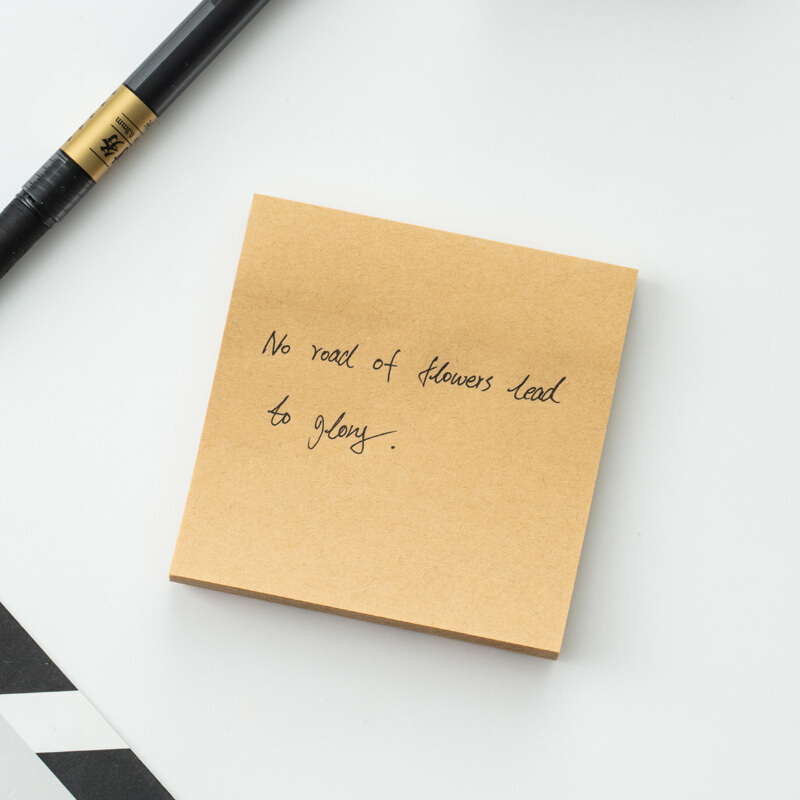 No road of flowers lead
to glory.
0.3mm